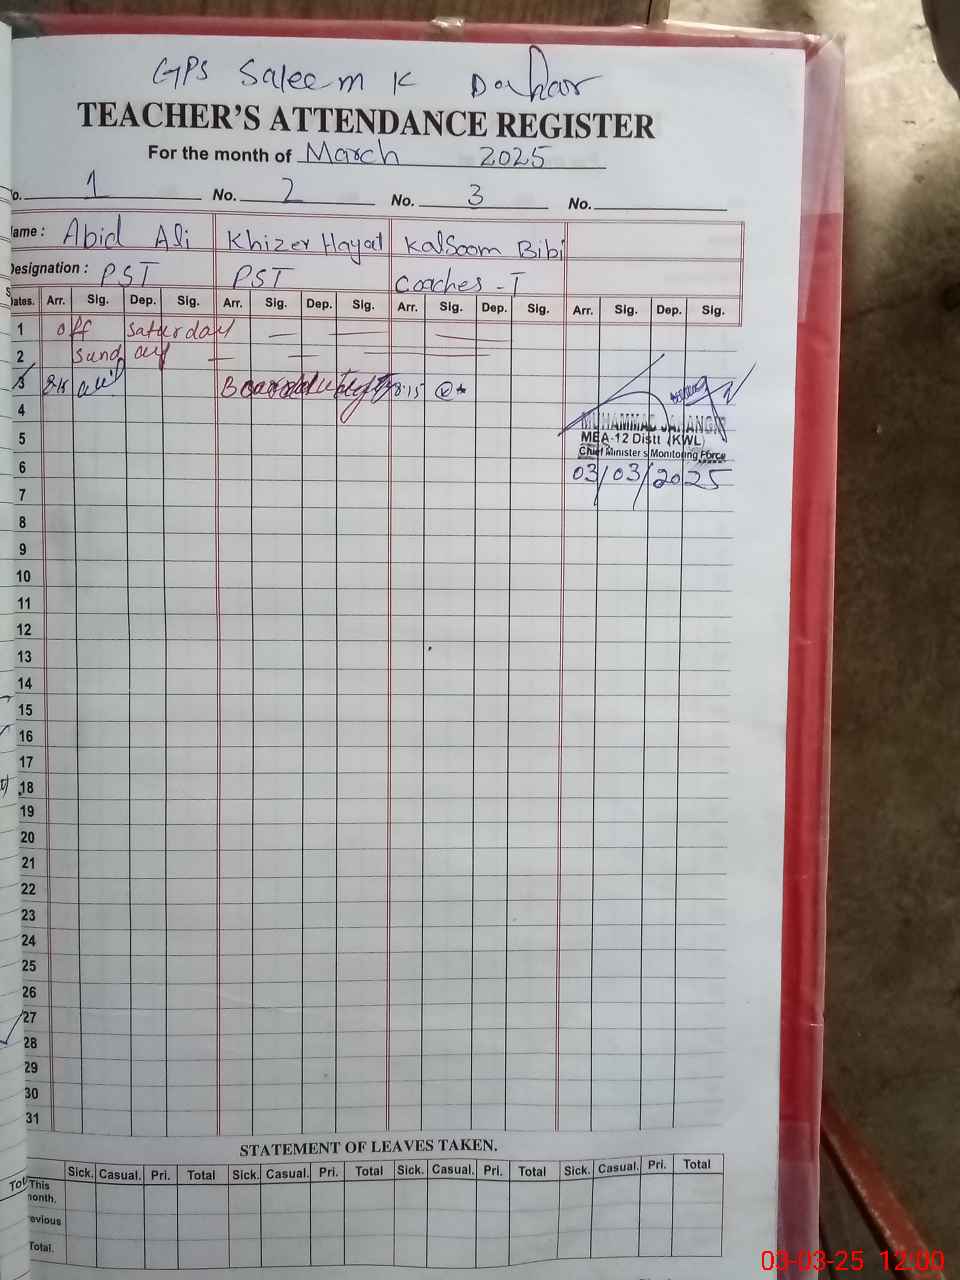 GPS Saleem K Dahar
TEACHER'S ATTENDANCE REGISTER
For the month of March 2025
o. 1 No. 2 No. 3 No.
ame : Abid Ali Khizer Hayat Kalsoom Bibi
Designation : PST PST Coaches - I
Dates. Arr. Sig. Dep. Sig. Arr. Sig. Dep. Sig. Arr. Sig. Dep. Sig. Arr. Sig. Dep. Sig.
1 off Saturday
2 Sunday
3 8:15 8:15
4
MUHAMMAD JAHANGIR
5 MEA-12 Distt (KWL)
Chief Minister's Monitoring Force
6 03/03/2025
7
8
9
10
11
12
13
14
15
16
17
18
19
20
21
22
23
24
25
26
27
28
29
30
31
STATEMENT OF LEAVES TAKEN.
Sick. Casual. Pri. Total Sick. Casual. Pri. Total Sick. Casual. Pri. Total Sick. Casual. Pri. Total
This
month.
evious
Total.
03-03-25 12:00